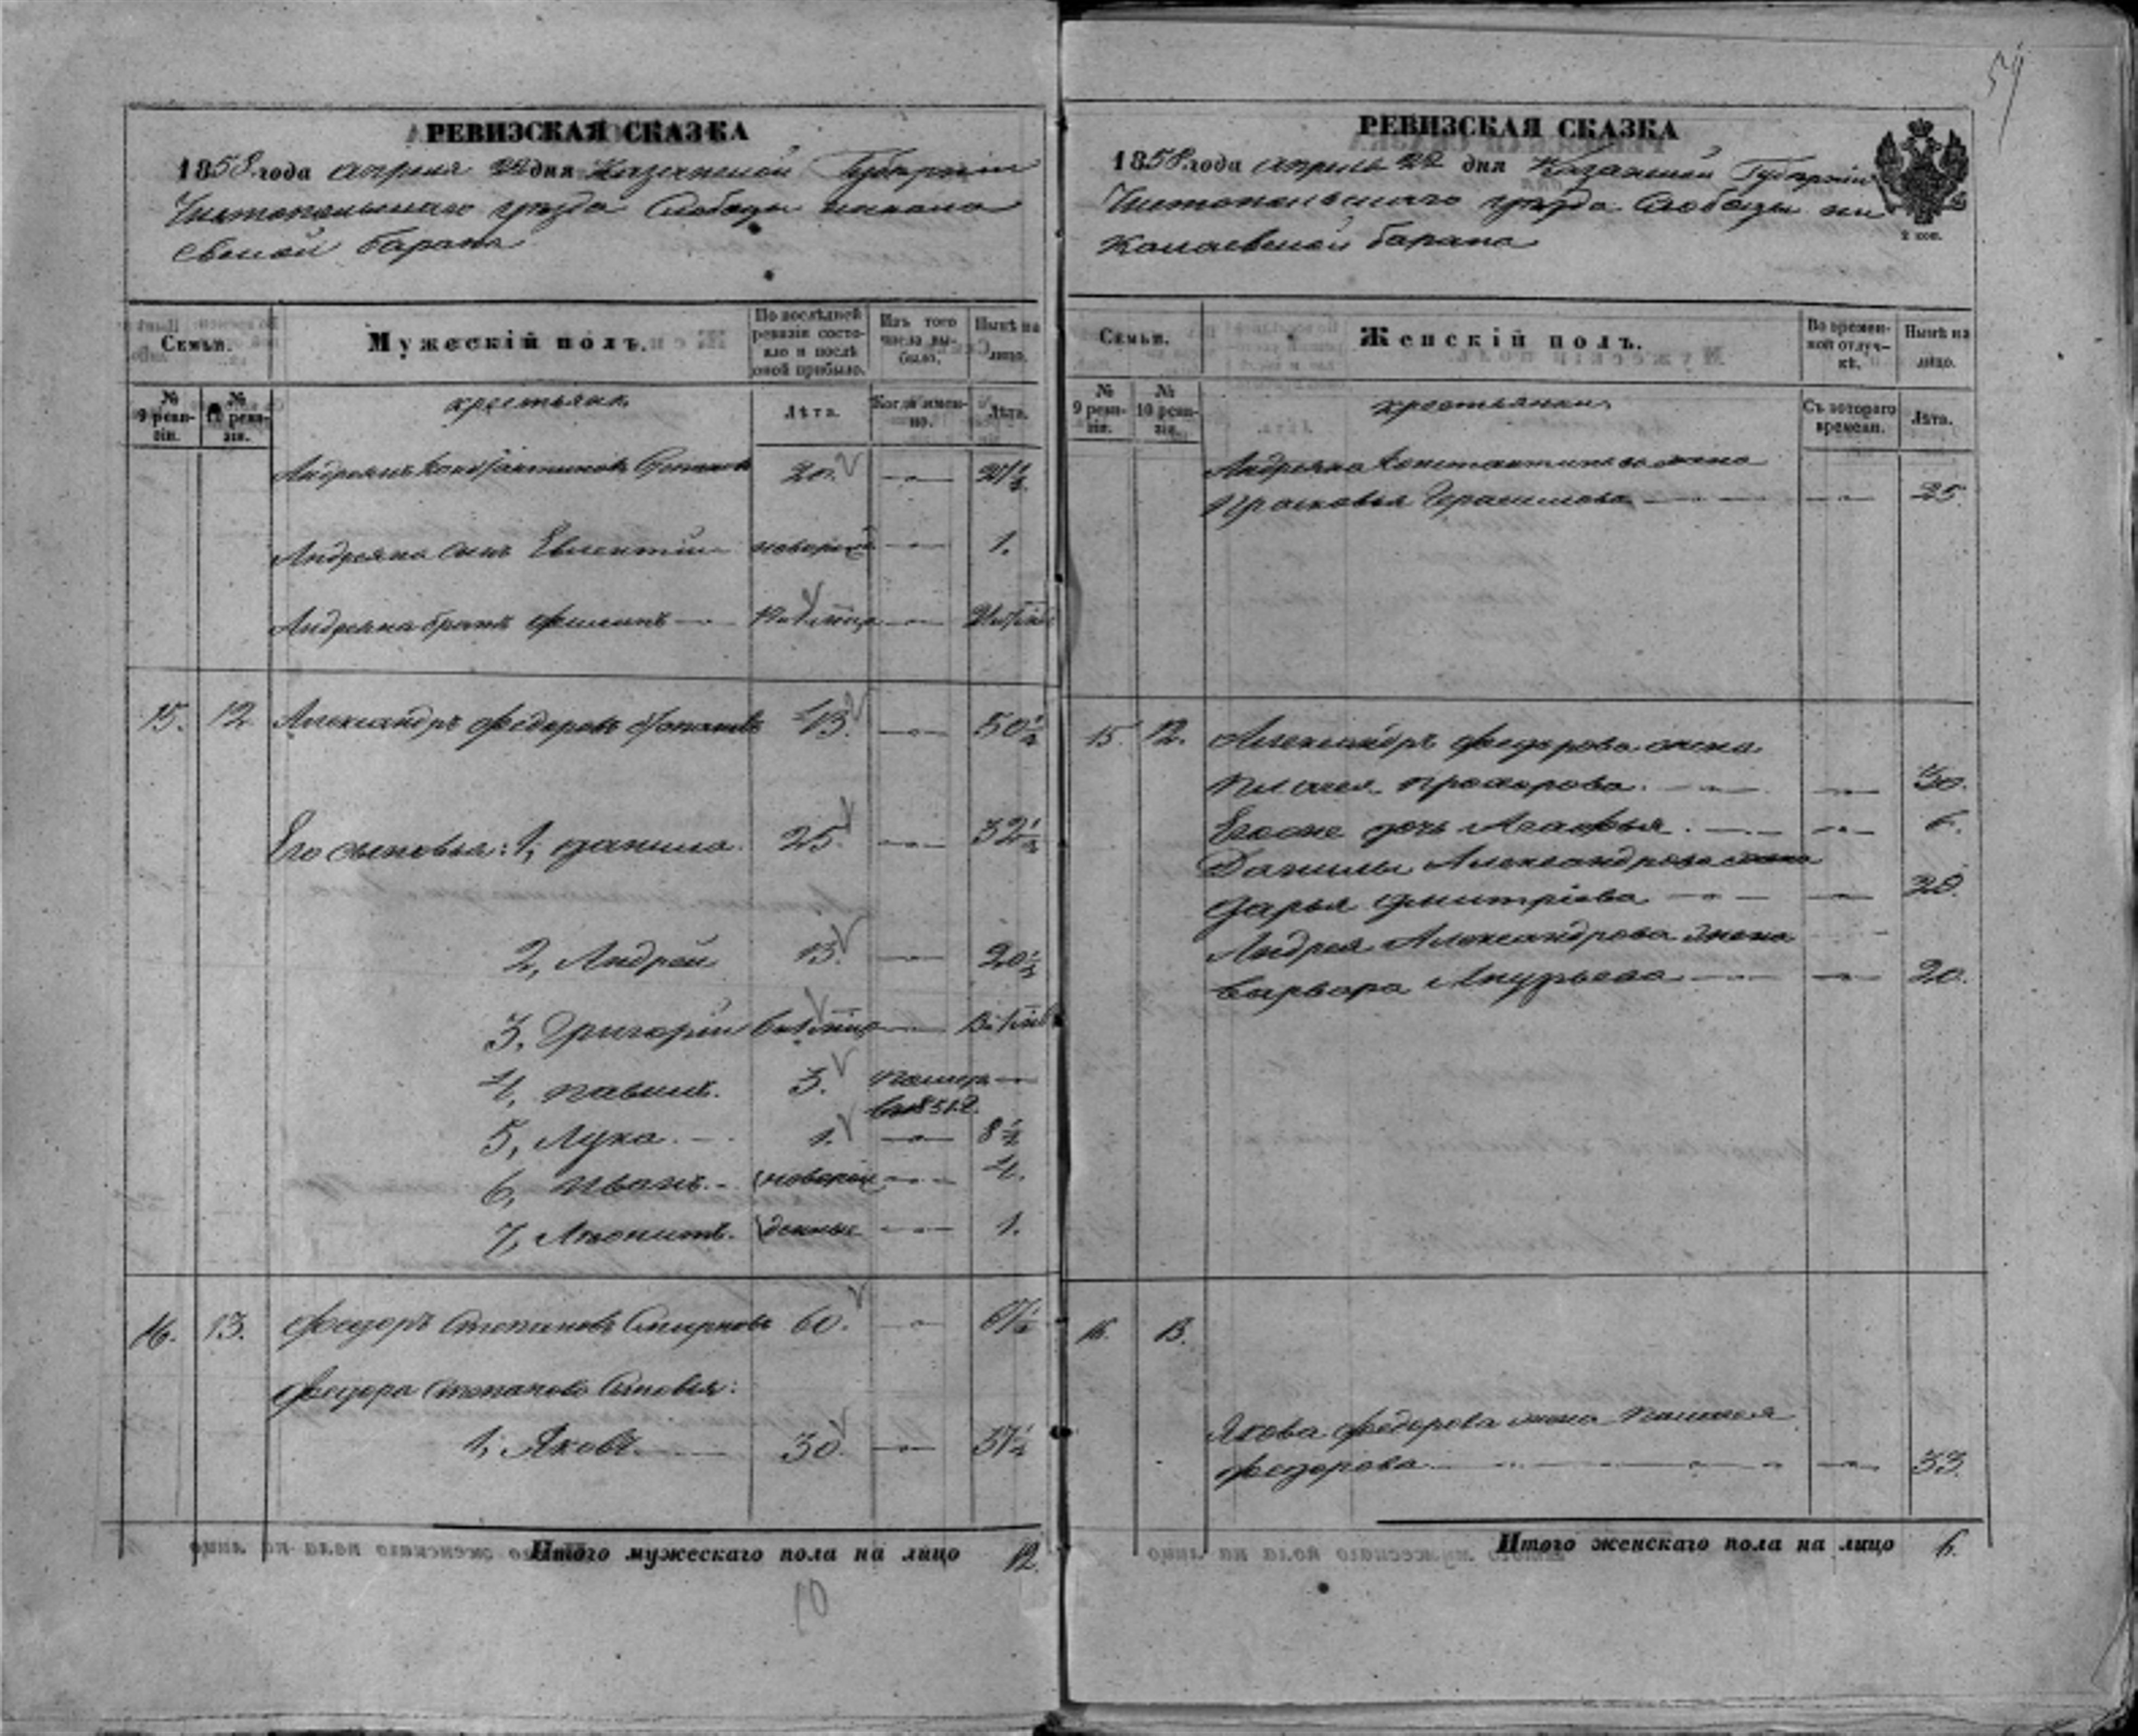 РЕВИЗСКАЯ СКАЗКА
1858 года апреля 22 дня Казанской Губернiи
Чистопольскаго уезда Слободы никола
евской барана
Семьи.
Мужескiй полъ.
По послѣдней ревизiи состояло и послѣ оной прибыло.
Изъ того числа выбыло.
Нынѣ на лицо.
№ 9 ревизiи.
№ 10 ревизiи.
крестьяне
Лѣта.
Когда именно.
Лѣта.
Андреянъ Константиновъ 20. 27½
Андреяна сынъ новорож 1.
Андреяна братъ
15. 12. Александръ Федоровъ 43. 50½
Его сыновья: 1, Данила. 25. 32½
2, Андрей 13. 20½
3, Григорiй
4, Павелъ. 3. помер
въ 851 г.
5, Лука. 1. 8½
6, Иванъ. новорож 4.
7, денные 1.
16. 13. Федоръ Степановъ Смирновъ 60. 67½
Федора Степанова Сыновья:
1, Яковъ 30. 37½
Итого мужескаго пола на лицо 12.
10
59
РЕВИЗСКАЯ СКАЗКА
1858 года апреля 22 дня Казанской Губернiи
Чистопольскаго уезда Слободы ни
колаевской барана
2 коп.
Семьи.
Женскiй полъ.
Во временной отлучкѣ.
Нынѣ на лицо.
№ 9 ревизiи.
№ 10 ревизiи.
крестьянки
Съ котораго времени.
Лѣта.
Андреяна Константинова жена
Прасковья Герасимова 25.
15. 12. Александръ Федорова жена
Прохорова. 50.
Егоже дочь Агафья. 6.
Данилы Александрова жена
Дарья Дмитрiева 28.
Андрея Александрова жена
Варвара 20.
16. 13.
Якова Федорова жена
Федорова 33.
Итого женскаго пола на лицо 6.